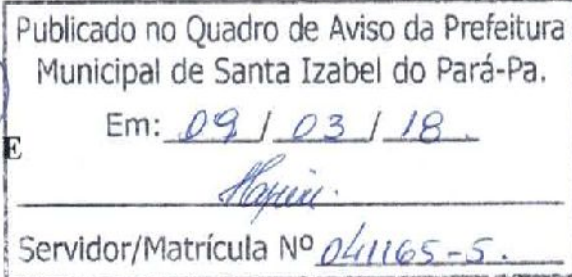 Publicado no Quadro de Aviso da Prefeitura
Municipal de Santa Izabel do Pará-Pa.
Em: 09 / 03 / 18.
E
Servidor/Matrícula Nº 041165-5.